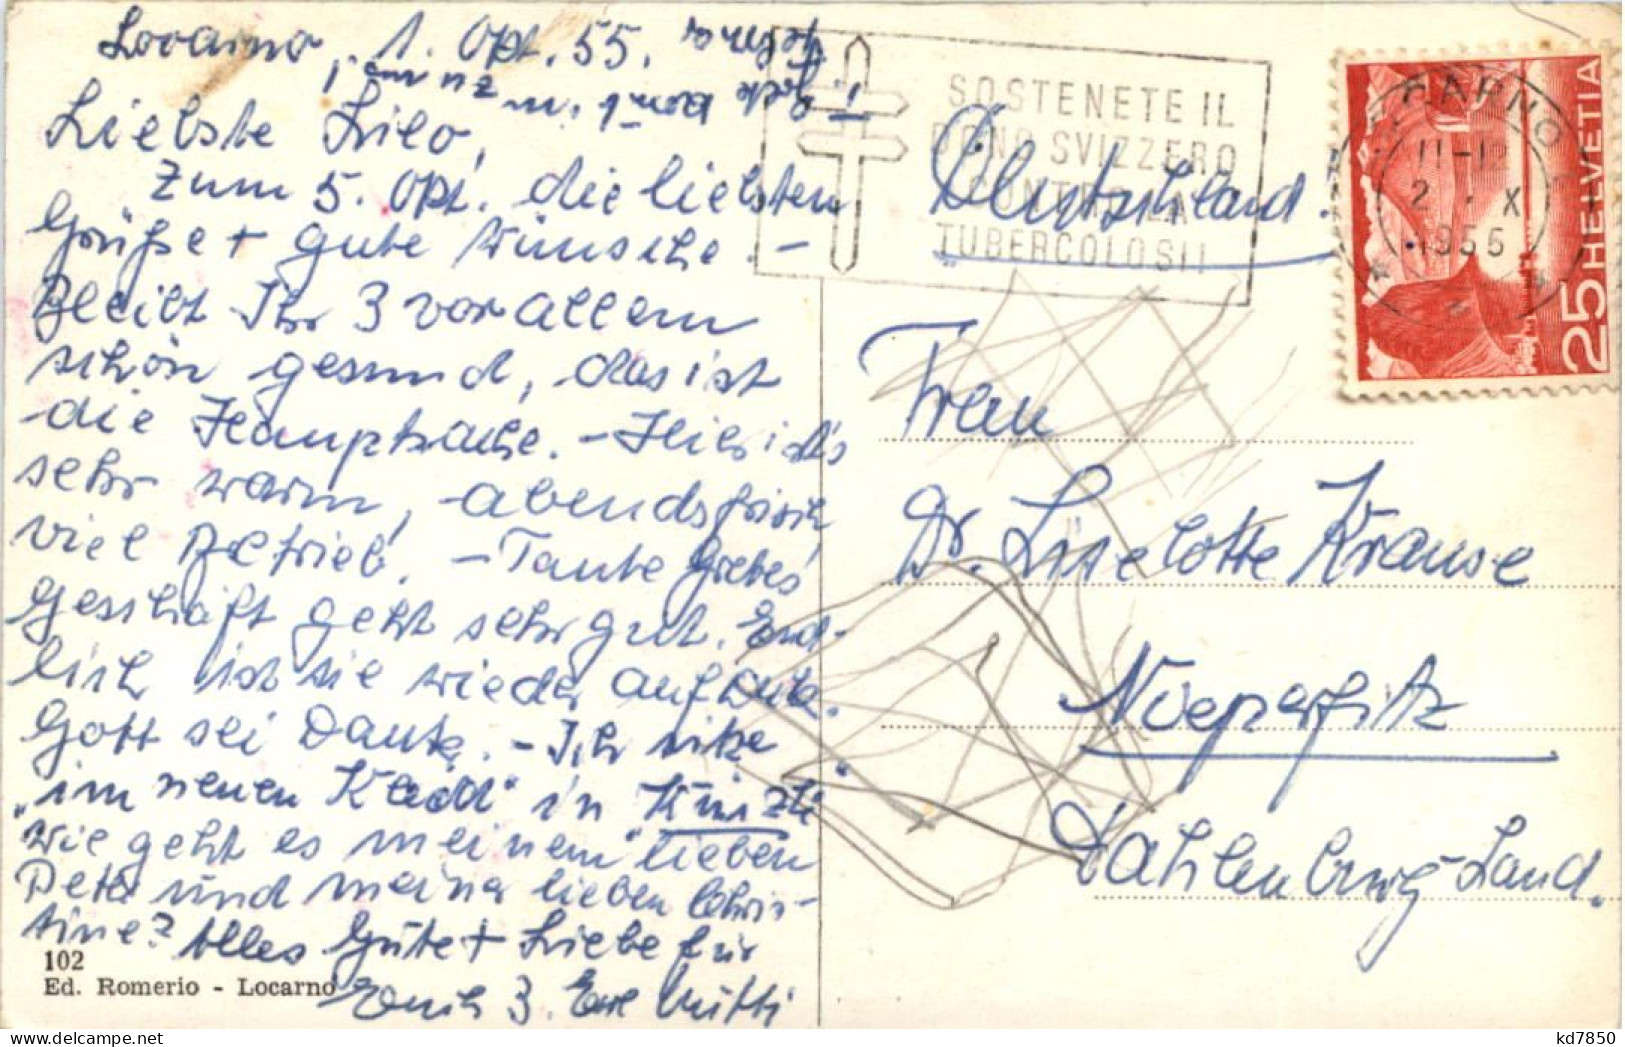 Locarno, 1. Okt. 55.
Liebste Lilo,
Zum 5. Okt. die liebsten
Grüße + gute Wünsche. -
Bleibt Ihr 3 vor allem
schön gesund, das ist
die Hauptsache. - Hier ist's
sehr warm, abends frisch,
viel Betrieb. - Tante Gretes
Geschäft geht sehr gut. End-
lich ist sie wieder auf Deck.
Gott sei Dank. - Ich sitze
"im neuen Kleid" in
wie geht es meinem lieben
Peter und meiner lieben Chris-
tine? Alles Gute + Liebe für
Euch 3. Eure Mutti
102
Ed. Romerio - Locarno
SOSTENETE IL
DONO SVIZZERO
CONTRO LA
TUBERCOLOSI!
Deutschland.
LOCARNO
11-12
2. X
1955
25 HELVETIA
Frau
Dr. Liselotte Krause
Nieperfitz
Dahlenburg-Land.
kd7850